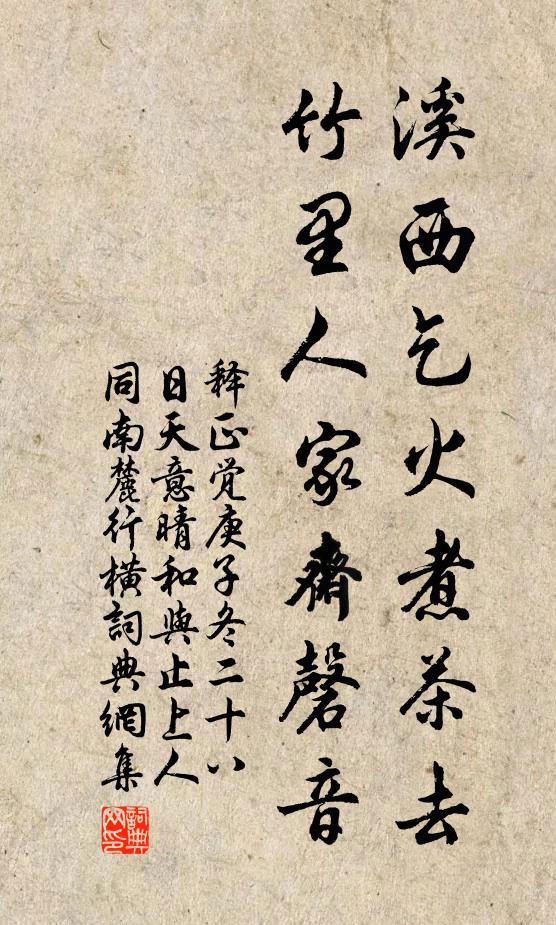 溪西乞火煮茶去
竹里人家齋磬音
释正觉庚子冬二十八
日天意晴和與止上人
同南麓行橫詞典網集
詞典
网印